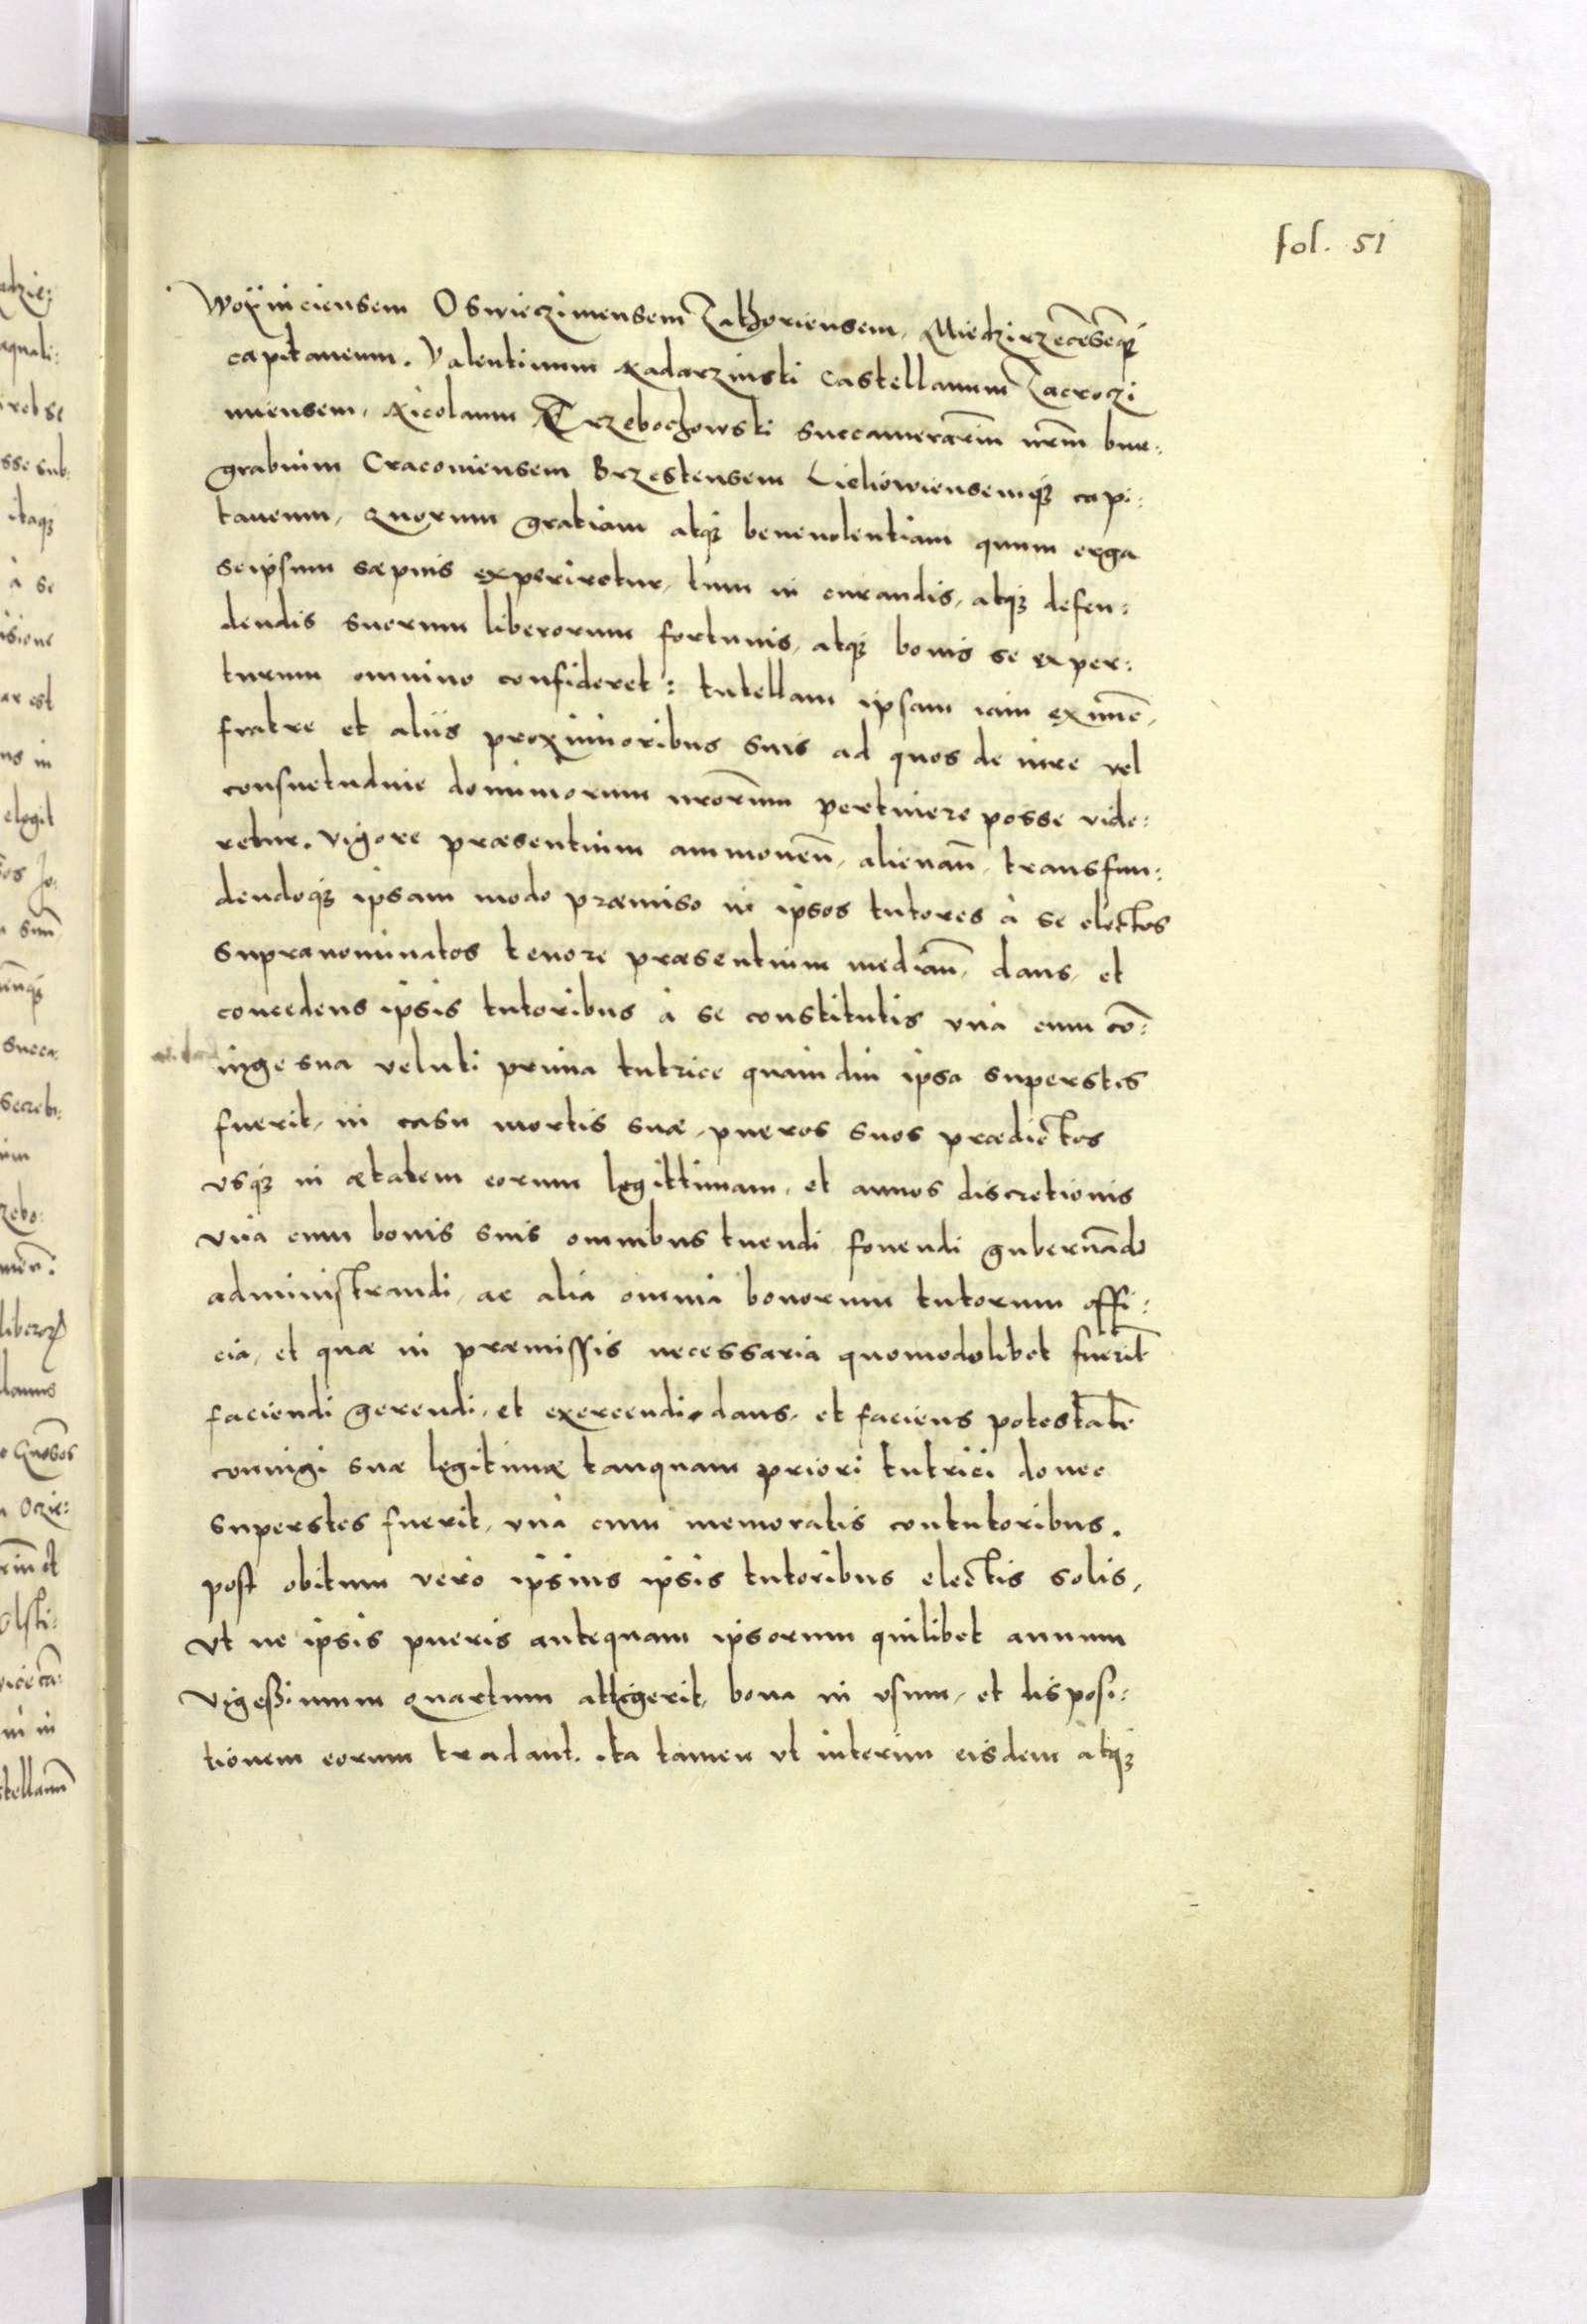 fol. 51
Woÿniciensem Oswieczimensem Zathoriensem, Miedzirzecēsēq3
capitaneum. Valentinum Nadarzinski Castellanum Zacroczi
miensem, Nicolaum Trzebochowski succamerariū nrm̄ bur:
grabium Cracoviensem Brzestensem Lichowiensemq3 capi:
taneum, quorum gratiam atq3 benevolentiam quum erga
seipsum sæpius experiretur, tum in curandis, atq3 defen:
dendis suorum liberorum fortunis, atq3 bonis se exper:
turum omnino confideret: tutellam ipsam iam eximēn̄,
fratre et aliis proximioribus suis ad quos de iure vel
consuetudine dominiorum nrorum̄ pertinere posse vide:
retur. vigore præsentium ammovēn̄, alienan̄, transfun:
dendoq3 ipsam modo præmiso in ipsos tutores à se electos
supranominatos tenore præsentium median̄, dans, et
concedens ipsis tutoribus à se constitutis unà cum cō:
iuge sua veluti prima tutrice quamdiu ipsa superstes
fuerit, in casu mortis suæ, pueros suos prædictos
usq3 in ætatem eorum legittimam, et annos discretionis
unà cum bonis suis omnibus tuendi fovendi gubernādo
administrandi, ac alia omnia bonorum tutorum offi:
cia, et quæ in præmissis necessaria quomodolibet fuerit̄
faciendi gerendi, et exercendi, dans, et faciens potestatē
coniugi suæ legitimæ tanquam priori tutrici donec
superstes fuerit, unà cum memoratis contutoribus.
post obitum vero ipsius ipsis tutoribus electis solis,
ut ne ipsis pueris antequam ipsorum quilibet annum
vigeßimum quartum attigerit, bona in usum, et disposi:
tionem eorum tradant. ita tamen ut interim eisdem atq3